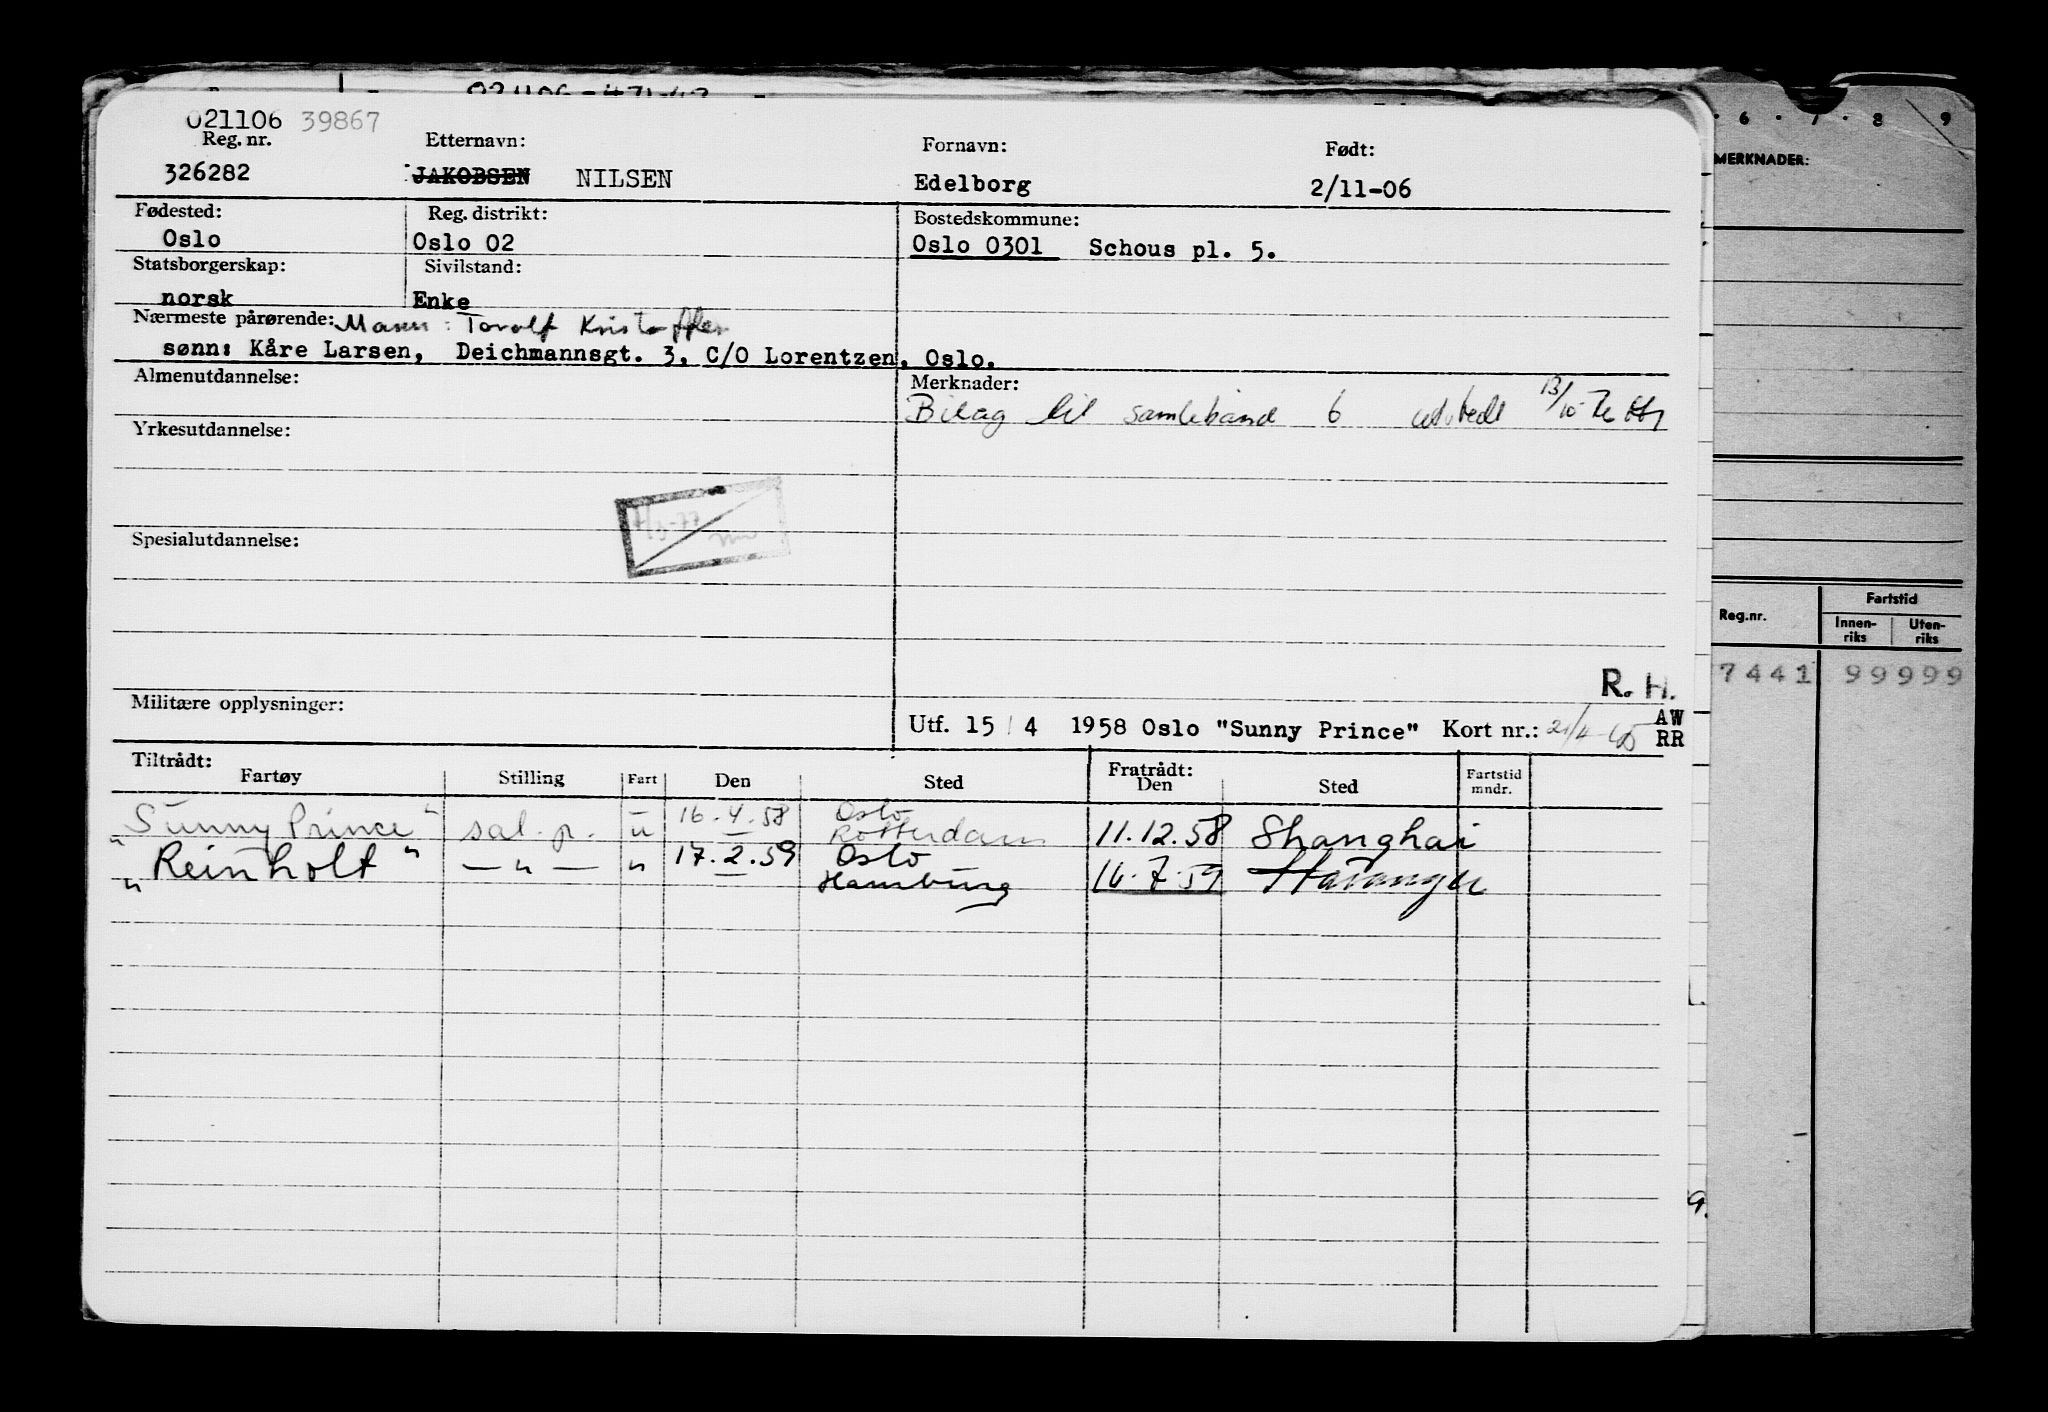 021106 39867
Reg. nr. Etternavn: Fornavn: Født:
326282 JAKOBSEN NILSEN Edelborg 2/11-06
Fødested: Reg. distrikt: Bostedskommune:
Oslo Oslo 02 Oslo 0301 Schous pl. 5.
Statsborgerskap: Sivilstand:
norsk Enke
Nærmeste pårørende: Mann: Torolf
sønn: Kåre Larsen, Deichmannsgt. 3, C/O Lorentzen, Oslo.
Almenutdannelse: Merknader:
Bilag til samlebånd 6 utstedt 13/10-
Yrkesutdannelse:
Spesialutdannelse:
R. H.
Militære opplysninger:
Utf. 15/4 1958 Oslo "Sunny Prince" Kort nr.: AW
RR
Tiltrådt: Fratrådt:
Fartøy Stilling Fart Den Sted Den Sted Fartstid mndr.
"Sunny Prince" sal. p. u 16.4.58 Oslo Rotterdam 11.12.58 Shanghai
"Reinholt" — " — " 17.2.59 Oslo Hamburg 16.7.59
6 7 8 9
MERKNADER:
Reg.nr. Fartstid
Innen-riks Uten-riks
7441 99999